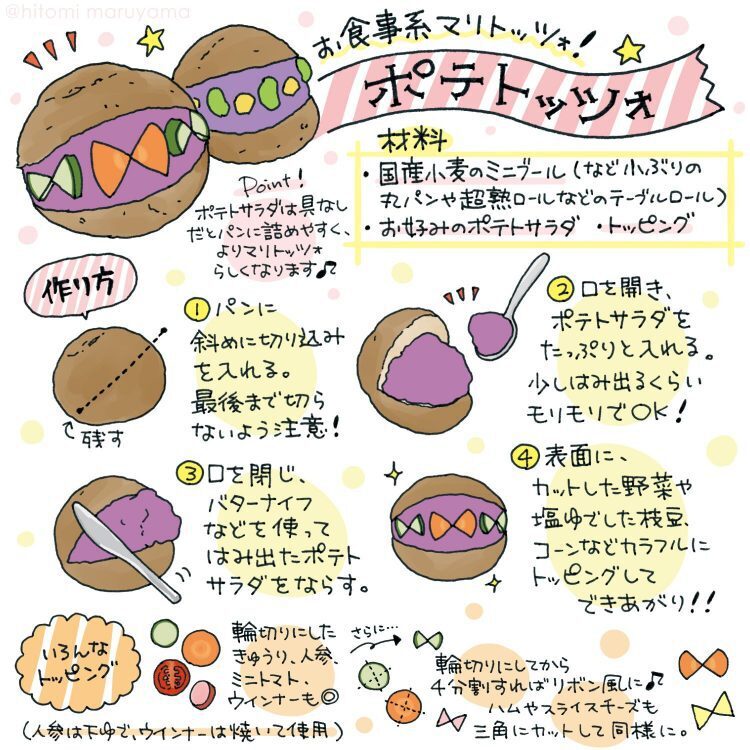 @hitomi maruyama
お食事系マリトッツォ!
ポテトッツォ
材料
・国産小麦のミニブール(など小ぶりの
丸パンや超熟ロールなどのテーブルロール)
・お好みのポテトサラダ ・トッピング
Point!
ポテトサラダは具なし
だとパンに詰めやすく、
よりマリトッツォ
らしくなります♪
作り方
① パンに
斜めに切り込み
を入れる。
最後まで切ら
ないよう注意!
残す
② 口を開き、
ポテトサラダを
たっぷりと入れる。
少しはみ出るくらい
モリモリでOK!
③ 口を閉じ、
バターナイフ
などを使って
はみ出たポテト
サラダをならす。
④ 表面に、
カットした野菜や
塩ゆでした枝豆、
コーンなどカラフルに
トッピングして
できあがり!!
いろんな
トッピング
輪切りにした
きゅうり、人参、
ミニトマト、
ウインナーも◎
(人参は下ゆで、ウインナーは焼いて使用)
さらに…
輪切りにしてから
4分割すればリボン風に♪
ハムやスライスチーズも
三角にカットして同様に。